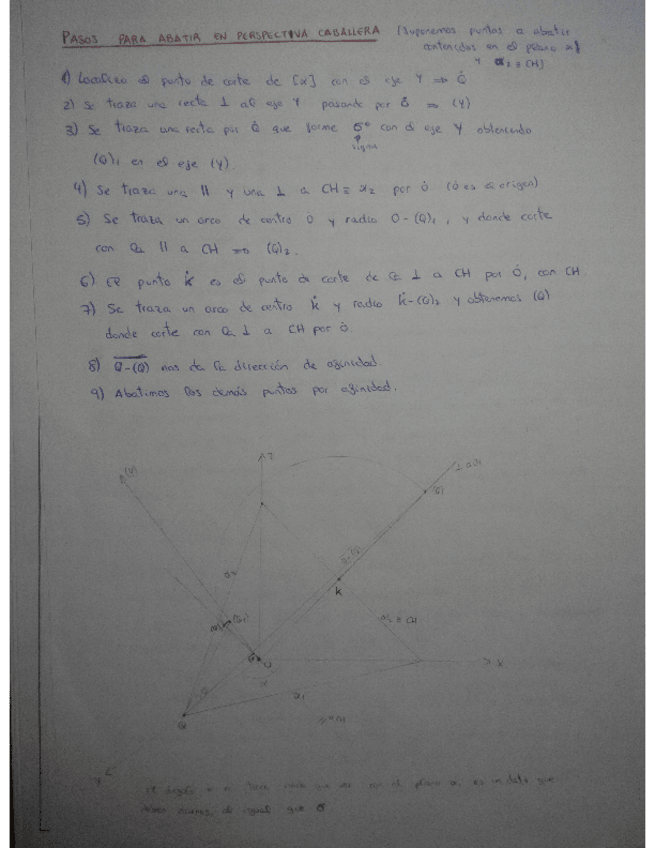 PASOS PARA ABATIR EN PERSPECTIVA CABALLERA (Suponemos puntos a abatir
contenidos en el plano α)
y α₂ ≡ CH)
1) Localizo el punto de corte de [α] con el eje Y ⇒ Q̇
2) Se traza una recta ⊥ al eje Y pasando por Ȯ ⇒ (Y)
3) Se traza una recta por Q̇ que forme σ° con el eje Y obteniendo
sigma
(Q)₁ en el eje (Y).
4) Se traza una || y una ⊥ a CH ≡ α₂ por ȯ (ȯ es el origen)
5) Se traza un arco de centro ȯ y radio O-(Q)₁, y donde corte
con la || a CH ⇒ (Q)₂.
6) El punto k̇ es el punto de corte de la ⊥ a CH por Ȯ, con CH.
7) Se traza un arco de centro k̇ y radio k̇-(Q)₂ y obtenemos (Q)
donde corte con la ⊥ a CH por ȯ.
8) Q-(Q) nos da la dirección de afinidad.
9) Abatimos los demás puntos por afinidad.
(Y)
Z
(Q)
K
α₂ ≡ CH
O
X
Q
Y